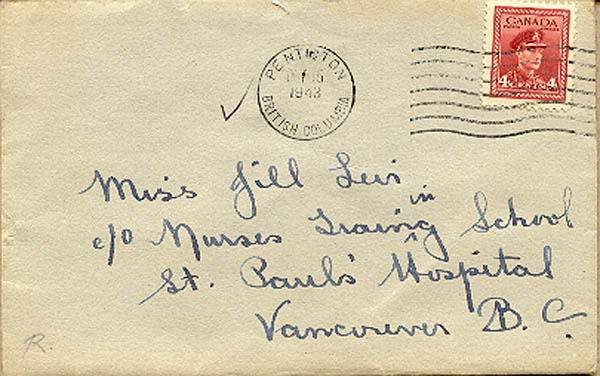 CANADA
4 CENTS 4
PENTICTON
1943
BRITISH COLUMBIA
Miss Jill
in
c/o Nurses Traing School
St. Paul's Hospital
Vancouver B.C.
R.